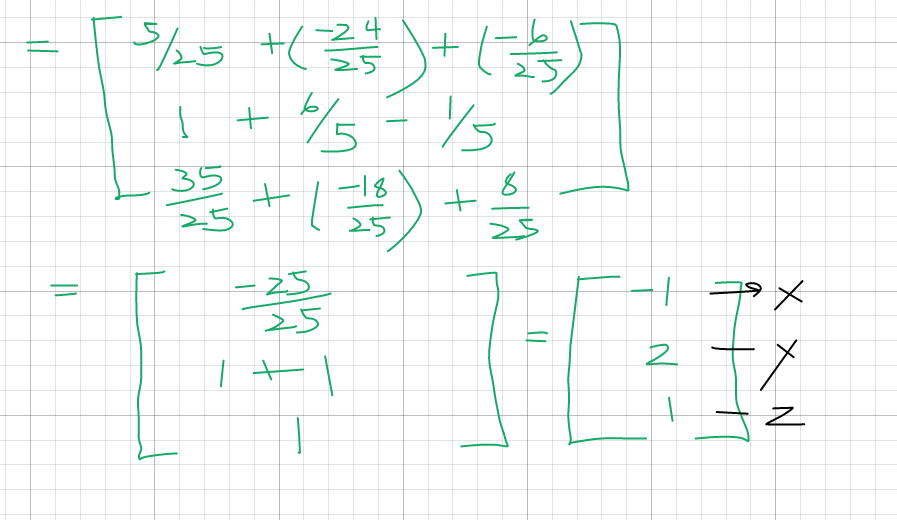 = [ 5/25 + (-24/25) + (-6/25) ]
1 + 6/5 - 1/5
35/25 + (-18/25) + 8/25
= [ -25/25 ] = [ -1 ] → x
1 + 1 2 — y
1 1 — z